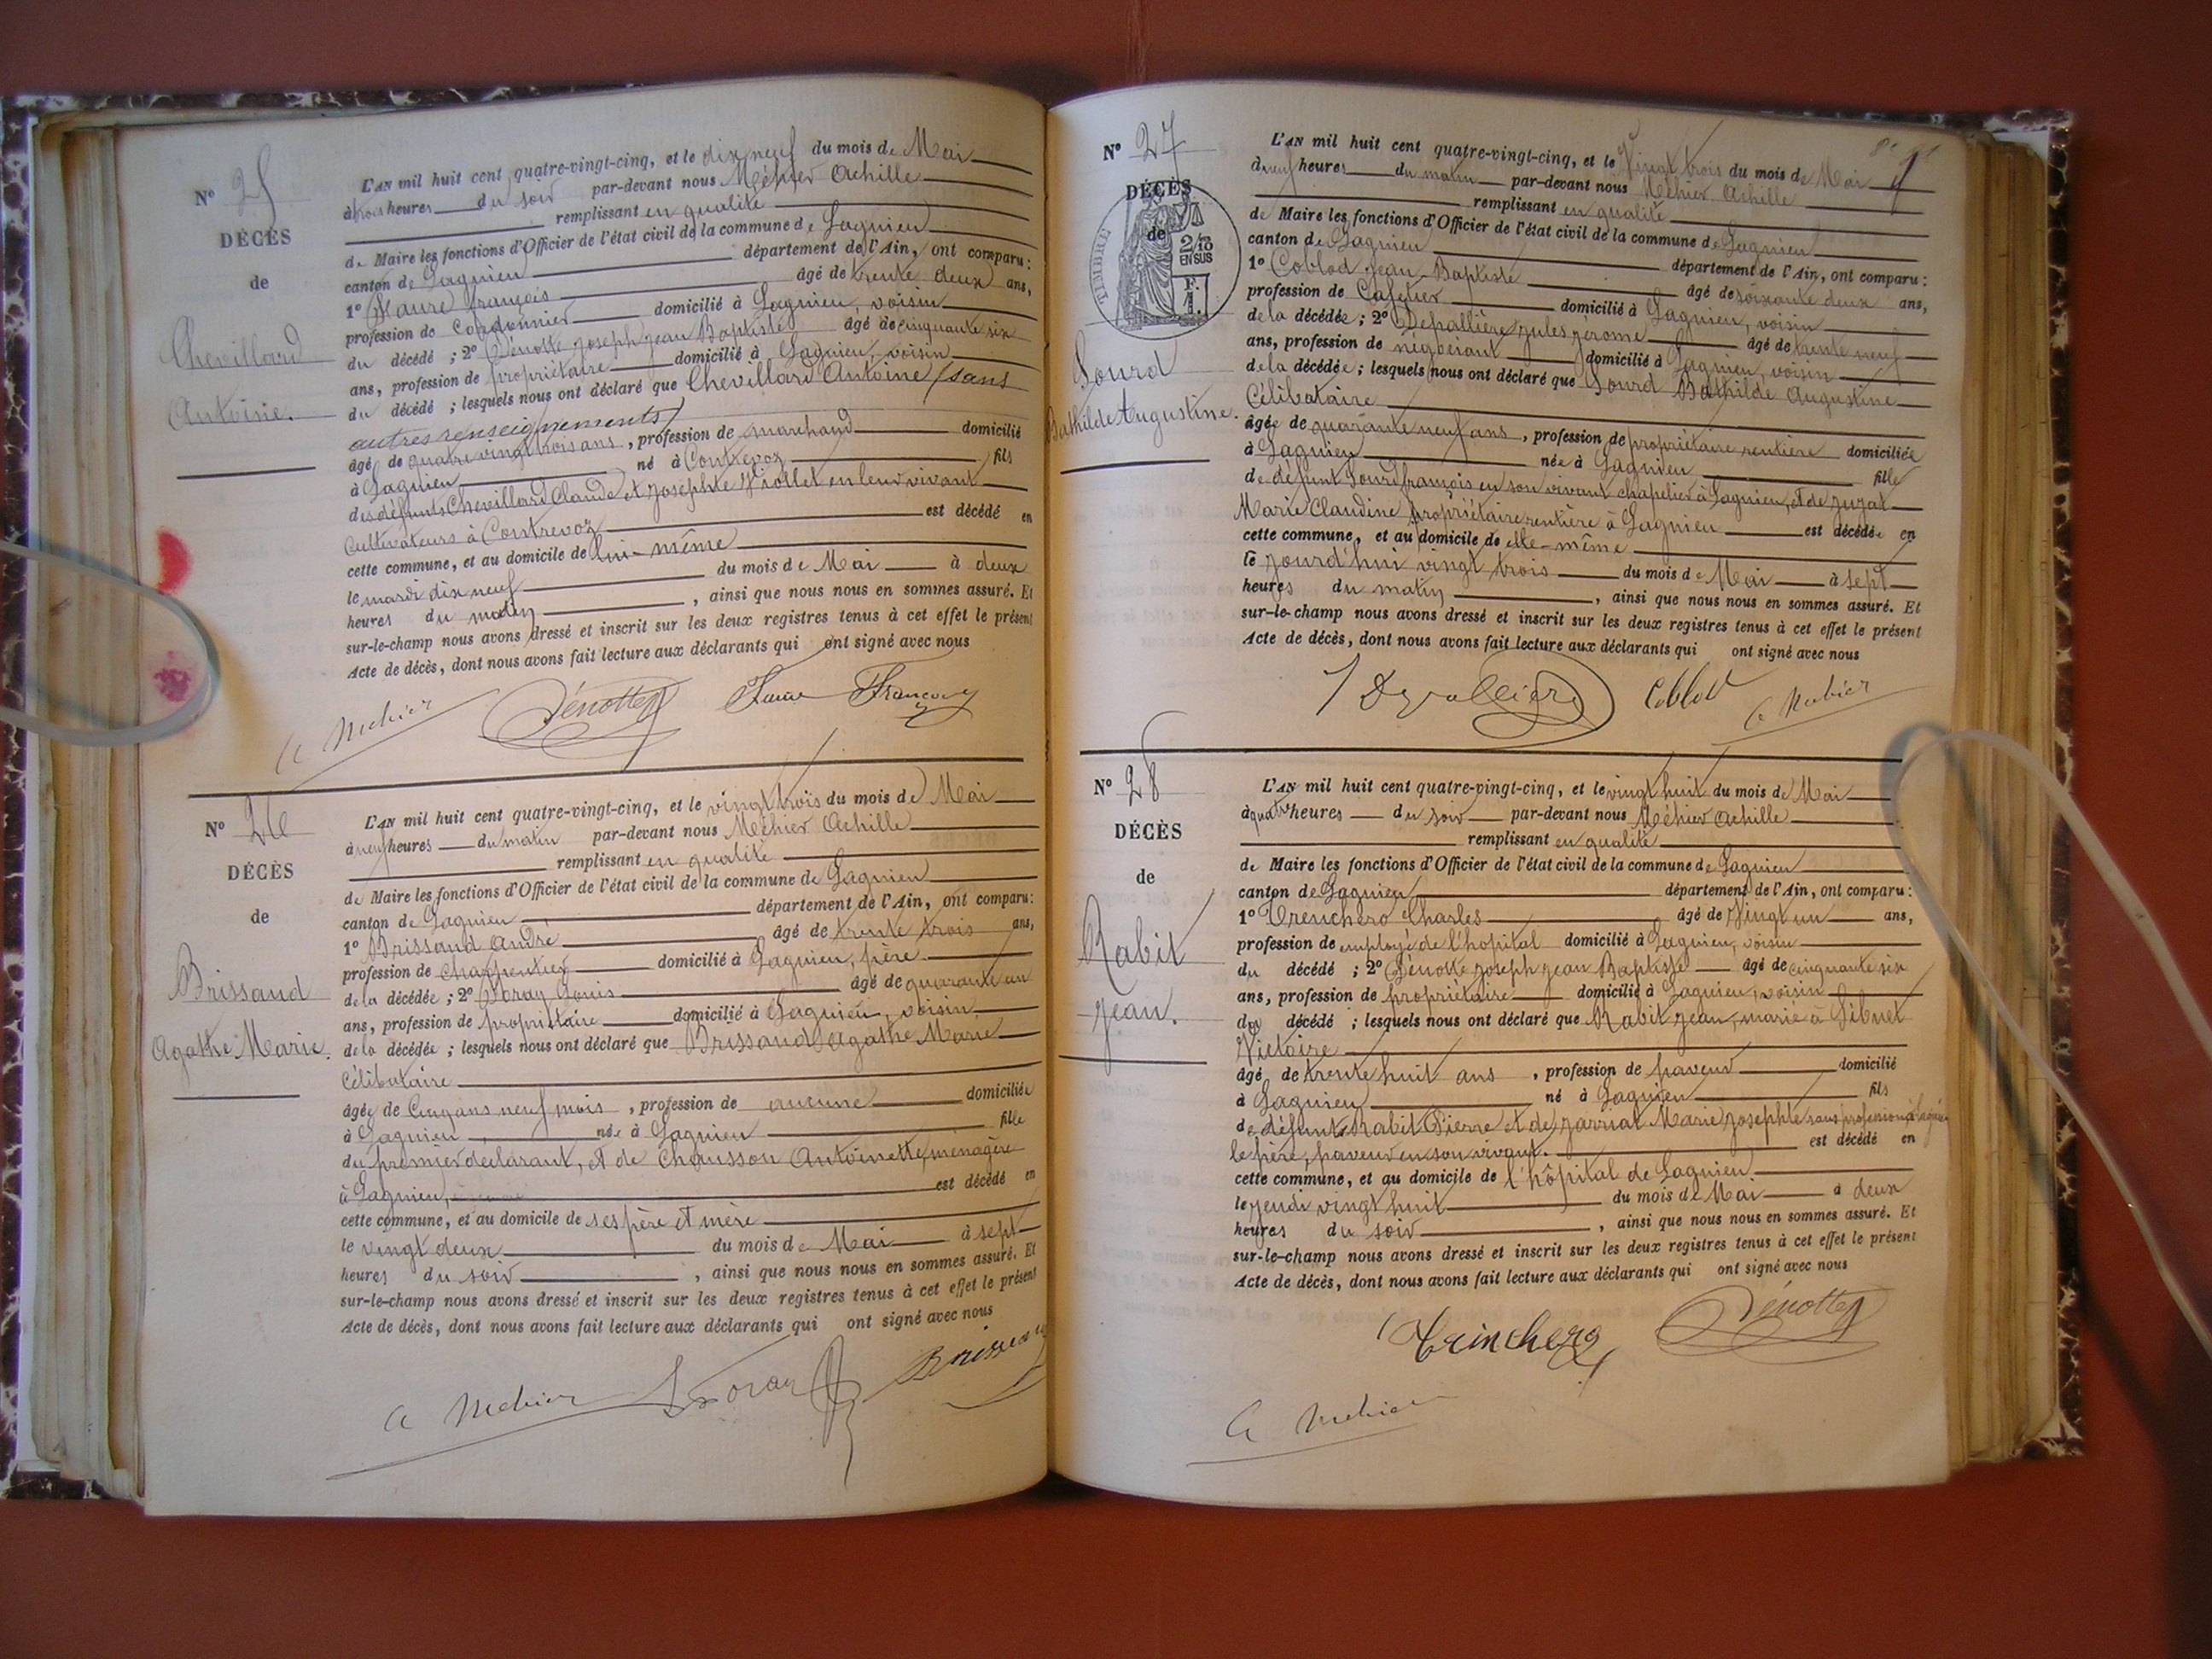 N° 25
DÉCÈS
de
Chevillard
Antoine.
L'AN mil huit cent quatre-vingt-cinq, et le dix neuf du mois de Mai
à trois heures du soir par-devant nous Méhier Achille
remplissant en qualité
de Maire les fonctions d'Officier de l'état civil de la commune de Lagnieu
canton de Lagnieu département de l'Ain, ont comparu :
1° Faure françois âgé de trente deux ans,
profession de Cordonnier domicilié à Lagnieu, voisin
du décédé ; 2° Dénotte joseph jean Baptiste âgé de cinquante six
ans, profession de propriétaire domicilié à Lagnieu, voisin
du décédé ; lesquels nous ont déclaré que Chevillard Antoine (sans
autres renseignements)
âgé de quatre vingt trois ans, profession de marchand domicilié
à Lagnieu né à Contrevoz fils
des défunts Chevillard Claude et josephte Viollet en leur vivant
Cultivateurs à Contrevoz est décédé en
cette commune, et au domicile de lui-même
le mardi dix neuf du mois de Mai à deux
heures du matin, ainsi que nous nous en sommes assuré. Et
sur-le-champ nous avons dressé et inscrit sur les deux registres tenus à cet effet le présent
Acte de décès, dont nous avons fait lecture aux déclarants qui ont signé avec nous
A Mehier Dénotte Faure François
N° 26
DÉCÈS
de
Brissaud
Agathe Marie.
L'AN mil huit cent quatre-vingt-cinq, et le vingt trois du mois de Mai
à neuf heures du matin par-devant nous Méhier Achille
remplissant en qualité
de Maire les fonctions d'Officier de l'état civil de la commune de Lagnieu
canton de Lagnieu département de l'Ain, ont comparu :
1° Brissaud André âgé de trente trois ans,
profession de Charpentier domicilié à Lagnieu, père
de la décédée ; 2° Louis âgé de quarante un
ans, profession de propriétaire domicilié à Lagnieu, voisin
de la décédée ; lesquels nous ont déclaré que Brissaud Agathe Marie
Célibataire
âgée de Cinq ans neuf mois, profession de aucune domiciliée
à Lagnieu, née à Lagnieu fille
du premier déclarant, et de Chausson Antoinette, ménagère
à Lagnieu, est décédé en
cette commune, et au domicile de ses père et mère
le vingt deux du mois de Mai à sept
heures du soir, ainsi que nous nous en sommes assuré. Et
sur-le-champ nous avons dressé et inscrit sur les deux registres tenus à cet effet le présent
Acte de décès, dont nous avons fait lecture aux déclarants qui ont signé avec nous
A Mehier Brissaud
N° 27
DÉCÈS
de
TIMBRE
2/10
EN SUS
F.
1.
Sourd
Bathilde Augustine.
L'AN mil huit cent quatre-vingt-cinq, et le Vingt trois du mois de Mai
à neuf heures du matin par-devant nous Méhier Achille
remplissant en qualité
de Maire les fonctions d'Officier de l'état civil de la commune de Lagnieu
canton de Lagnieu département de l'Ain, ont comparu :
1° Coblod jean Baptiste âgé de soixante deux ans,
profession de Cafetier domicilié à Lagnieu, voisin
de la décédée ; 2° Depallière jules jerome âgé de trente neuf
ans, profession de négociant domicilié à Lagnieu, voisin
de la décédée ; lesquels nous ont déclaré que Sourd Bathilde Augustine
Célibataire
âgée de quarante neuf ans, profession de propriétaire rentière domiciliée
à Lagnieu née à Lagnieu fille
de défunt Sourd françois en son vivant chapelier à Lagnieu, et de juzat
Marie Claudine propriétaire rentière à Lagnieu est décédée en
cette commune, et au domicile de elle-même
le jourd'hui vingt trois du mois de Mai à sept
heures du matin, ainsi que nous nous en sommes assuré. Et
sur-le-champ nous avons dressé et inscrit sur les deux registres tenus à cet effet le présent
Acte de décès, dont nous avons fait lecture aux déclarants qui ont signé avec nous
J Depallière Coblod A Mehier
N° 28
DÉCÈS
de
Rabit
jean.
L'AN mil huit cent quatre-vingt-cinq, et le vingt huit du mois de Mai
à quatre heures du soir par-devant nous Méhier Achille
remplissant en qualité
de Maire les fonctions d'Officier de l'état civil de la commune de Lagnieu
canton de Lagnieu département de l'Ain, ont comparu :
1° Trenchero Charles âgé de Vingt un ans,
profession de employé de l'hôpital domicilié à Lagnieu, voisin
du décédé ; 2° Dénotte joseph jean Baptiste âgé de cinquante six
ans, profession de propriétaire domicilié à Lagnieu, voisin
du décédé ; lesquels nous ont déclaré que Rabit jean, marié à
Victoire
âgé de trente huit ans, profession de paveur domicilié
à Lagnieu né à Lagnieu fils
de défunt Rabit Pierre et de jarriat Marie josephte sans profession à Lagnieu
le père, paveur en son vivant. est décédé en
cette commune, et au domicile de l'hôpital de Lagnieu
le jeudi vingt huit du mois de Mai à deux
heures du soir, ainsi que nous nous en sommes assuré. Et
sur-le-champ nous avons dressé et inscrit sur les deux registres tenus à cet effet le présent
Acte de décès, dont nous avons fait lecture aux déclarants qui ont signé avec nous
Trinchero Dénotte
A Mehier